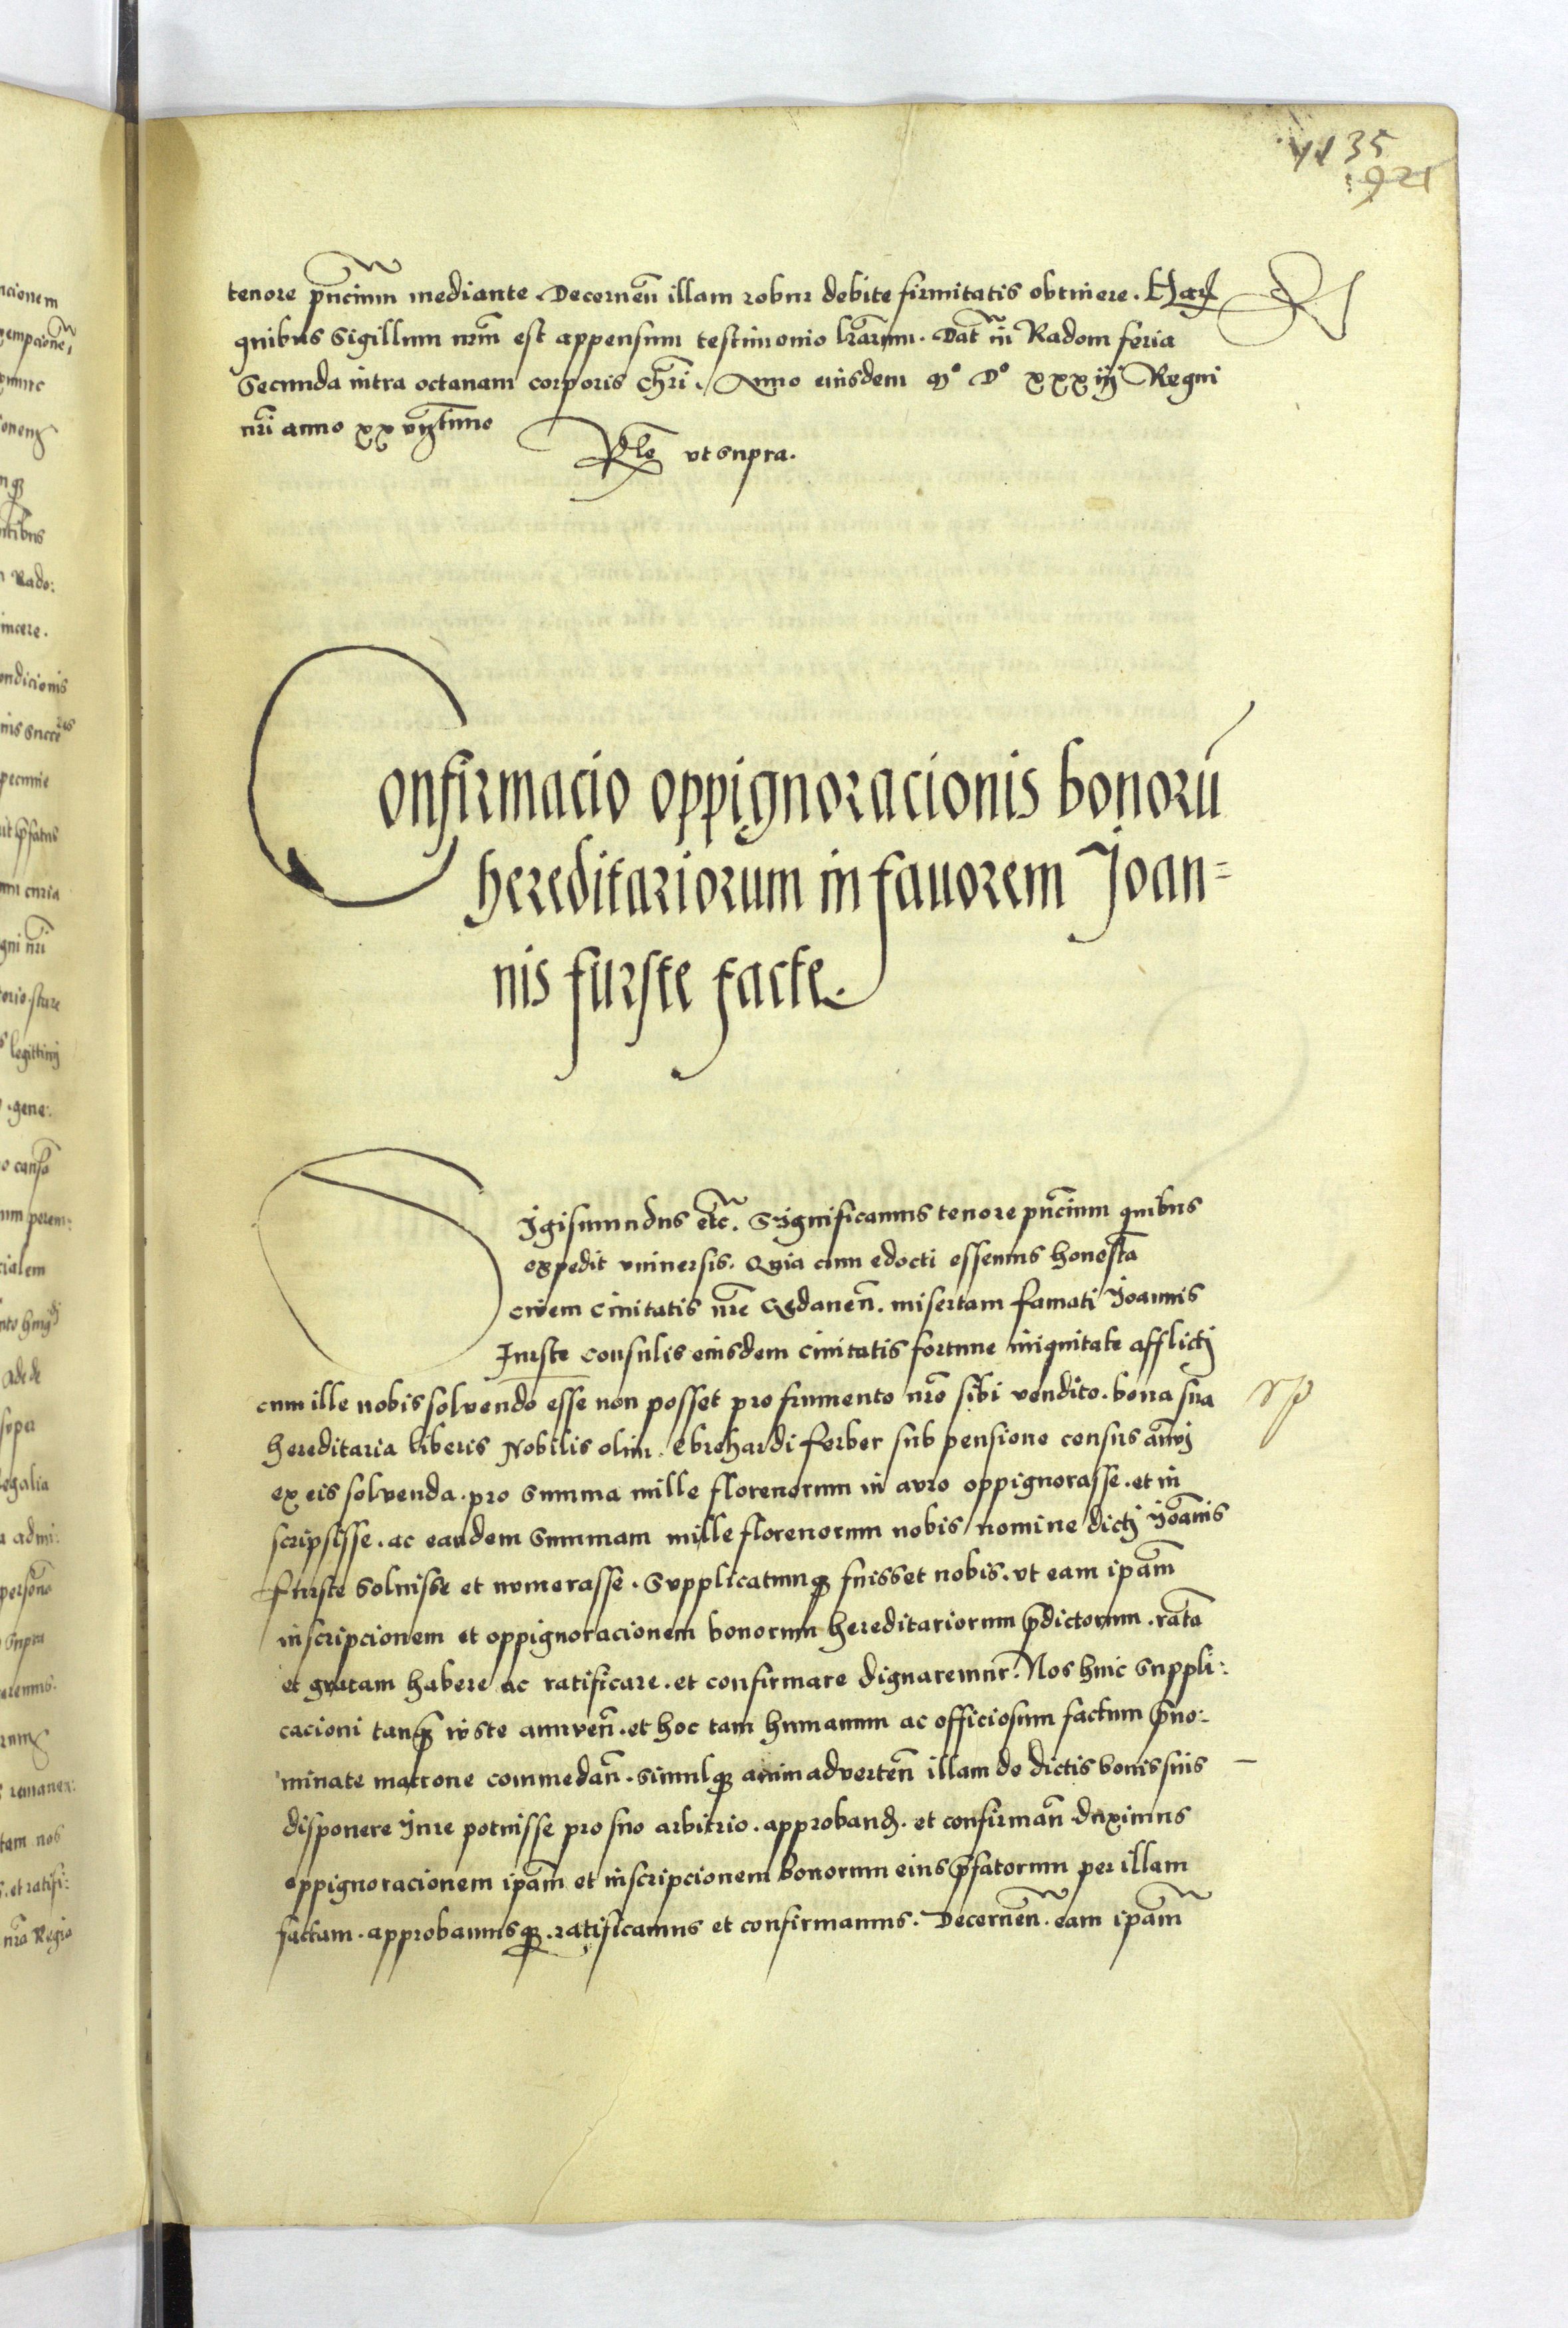 35
921
tenore pn̄cium mediante. Decernen̄ illam robur debite firmitatis obtinere. Har
quibus Sigillum nr̄m est appensum testimonio lr̄arum. Dat̄ in Radom feria
Secunda intra octauam corporis Chr̄i. Anno eiusdem Mᵒ Dᵒ xxxiij Regni
nr̄i anno xxvijtimo
Rlē vt supra.
Confirmacio oppignoracionis bonorū
hereditariorum in fauorem Joan=
nis furste facte.
Sigismundus etc̄. Significamus tenore pn̄cium quibus
expedit vniuersis. Quia cum edocti essemus honesta
ciuem Ciuitatis nr̄e Gedanen̄. misertam famati Joannis
Furste consulis eiusdem ciuitatis fortune iniquitate afflictj
cum ille nobis soluendo esse non posset pro frumento nr̄o sibi vendito. bona sua
hereditaria liberis Nobilis olim Ebrehardi Ferber sub pensione census annuj
ex eis soluenda. pro summa mille florenorum in auro oppignorasse. et in
scripsisse. ac eandem summam mille florenorum nobis nomine dictj Joānis
Furste Soluisse et numerasse. Supplicatumqȝ fuisset nobis. vt eam ipām
inscripcionem et oppignoracionem bonorum hereditariorum p̄dictorum. ratā
et gratam habere ac ratificare. et confirmare dignaremur. Nos huic suppli:
cacioni tanqȝ iuste annuen̄. et hoc tam humanum ac officiosum factum p̄no:
minate matrone commedan̄. simulqȝ animaduerten̄ illam de dictis bonis suis
disponere Jure potuisse pro suo arbitrio. approband. et confirman̄ duximus
oppignoracionem ipām et inscripcionem bonorum eius p̄fatorum per illam
factam. approbamusqȝ. ratificamus et confirmamus. Decernen̄. eam ipām